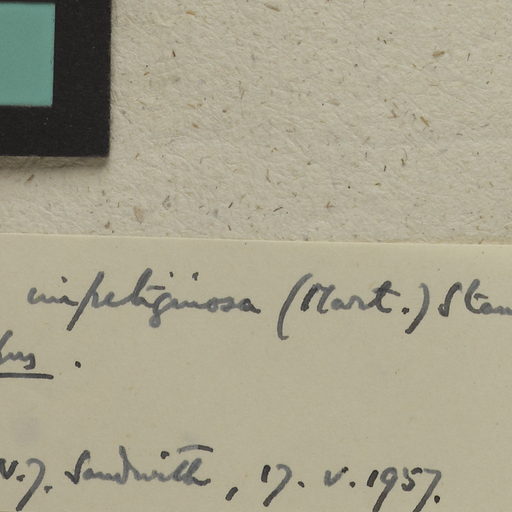 impetiginosa (Mart.) Stan
N.Y. Sandwith, 17. V. 1957.